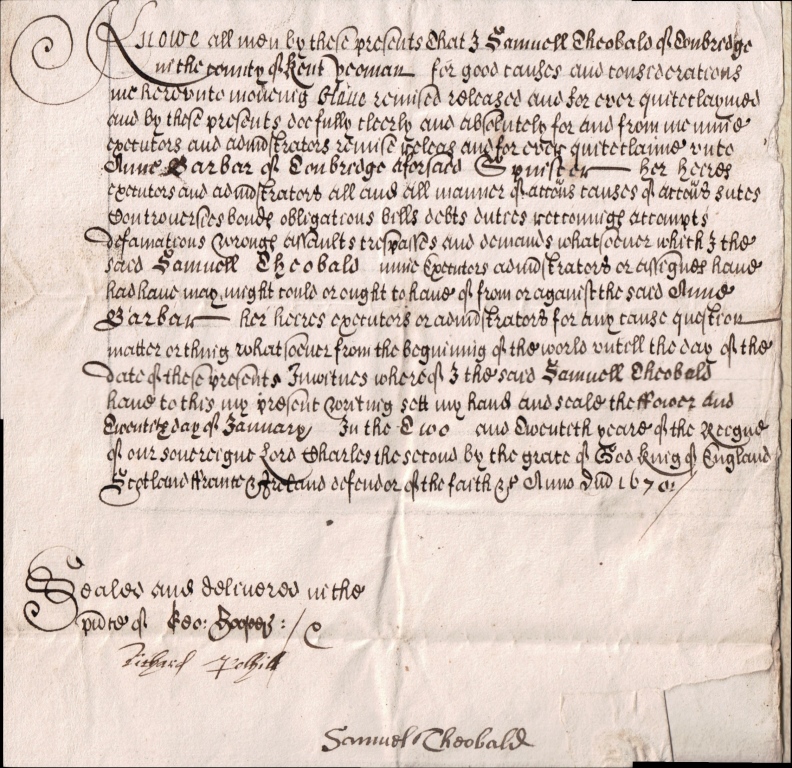 Knowe all men by these presents that I Samuell Theobald of Tonbredge
in the county of Kent Yeoman for good causes and consideracions
me herevnto moveing Have remised released and for ever quiteclaymed
and by these presents doe fully cleerly and absolutely for and from me mine
executors and administrators remise releas and for ever quiteclaime vnto
Anne Barbar of Tonbredge aforsaid Spinister her heeres
executors and administrators all and all manner of accons causes of accons sutes
Controversies bonds obligations bills debts duties reconinge accompts
defamations wronge assaults trespasses and demands whatsoever which I the
said Samuell Theobald mine Executors administrators or assignes have
had have may might could or ought to have of from or against the said Anne
Barbar her heeres executors or administrators for any cause question
matter or thing whatsoever from the beginning of the world vntill the day of the
date of these presents In witnes whereof I the said Samuell Theobald
have to this my present writing sett my hand and seale the ffower and
twentith day of January In the Two and twentith yeare of the Reigne
of our sovereigne Lord Charles the second by the grace of God King of England
Scotland ffrance & Ireland defendor of the faith &c Anno Dnd 1670:
Sealed and delivered in the
pnce of Geo: Hooper :/
Richard Polhill
Samuel Theobald